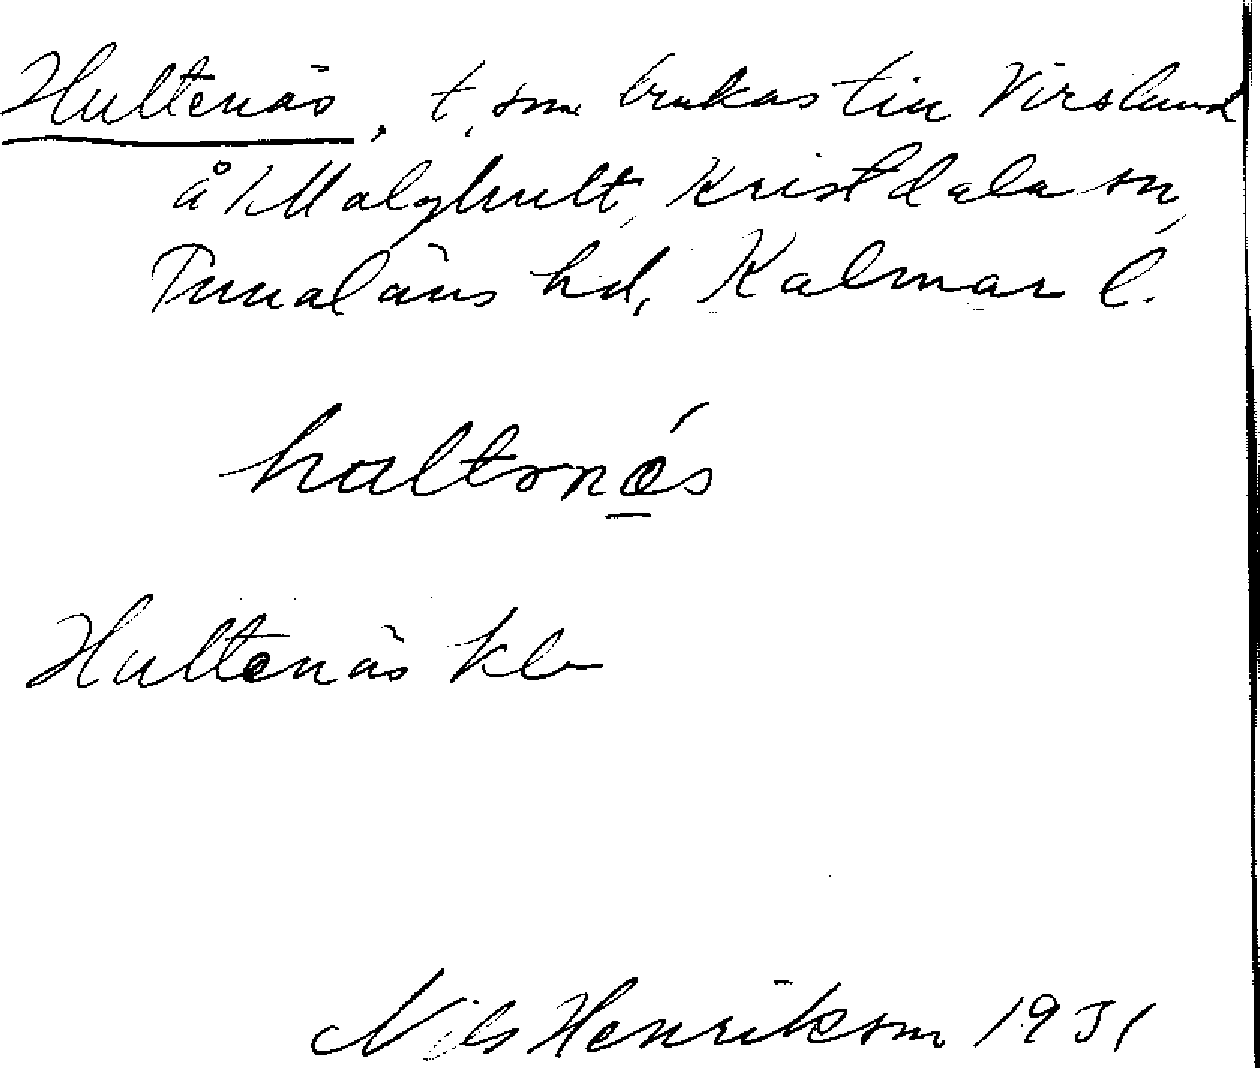 Hultenäs, t, som brukas till Virslund
å Malghult, Kristdala sn,
Tunaläns hd, Kalmar l.
hultɘnǽ̲s
Hultenäs kb
Nils Henrikson 1931